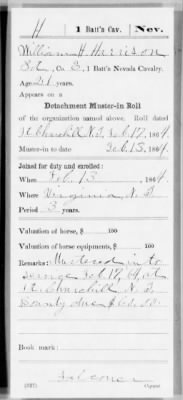 H | 1 Batt'n Cav. | Nev.
William H. Harrison
Co. B, 1 Batt'n Nevada Cavalry.
Age 21 years.
Appears on a
Detachment Muster-in Roll
of the organization named above. Roll dated
Ft. Churchill N.T., Feb. 17, 1864.
Muster-in to date Feb. 13, 1864
Joined for duty and enrolled:
When Feb. 13, 1864.
Where Virginia, N.T.
Period 3 years.
Valuation of horse, $ 100
Valuation of horse equipments, $ 100
Remarks: Mustered into
service Feb. 17, 64, at
Ft. Churchill N.T.
Bounty due $60.00.
Book mark:
(337) Copyist.